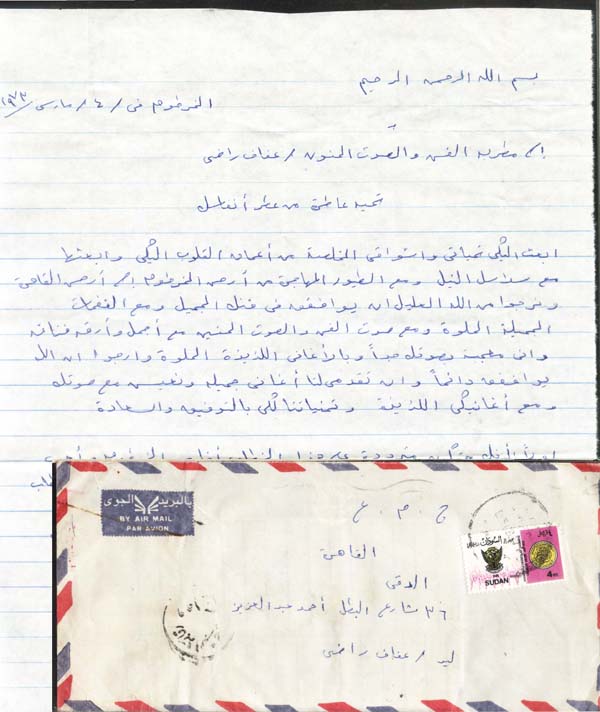 بسم الله الرحمن الرحيم
الخرطوم فى / ٤ / مارس / ١٩٧٣
إلى مطربه الفن والصوت الحنون / عفاف راضى
تحيه عاطرة من عطر أنفاسك
ابعث اليكى تحياتى واشواقى الخالصة من أعماق القلوب اليكى وابعثها
مع سلاسل النيل ومع الطيور المهاجرة من أرض الخرطوم إلى أرض القاهرة
ونرجوا من الله العليل ان يوافقك فى فنك الجميل ومع النغمات
الجميلة الحلوة ومع صوت الفن والصوت الحنين مع أجمل وأرقه فنانه
وانى معجبة بصوتك جداً وبالأغانى اللذيذة الحلوة وارجوا ان الله
يوافقك دائماً وان تقدمى لنا أغانى جميله ونعيش مع صوتك
ومع أغانيكى اللذيذة وتمنياتنا لكى بالتوفيق والسعادة
بالبريد الجوى
BY AIR MAIL
PAR AVION
ج . م . ع
القاهرة
الدقى
٣٦ شارع البطل أحمد عبدالعزيز
ليد / عفاف راضى
SUDAN
4